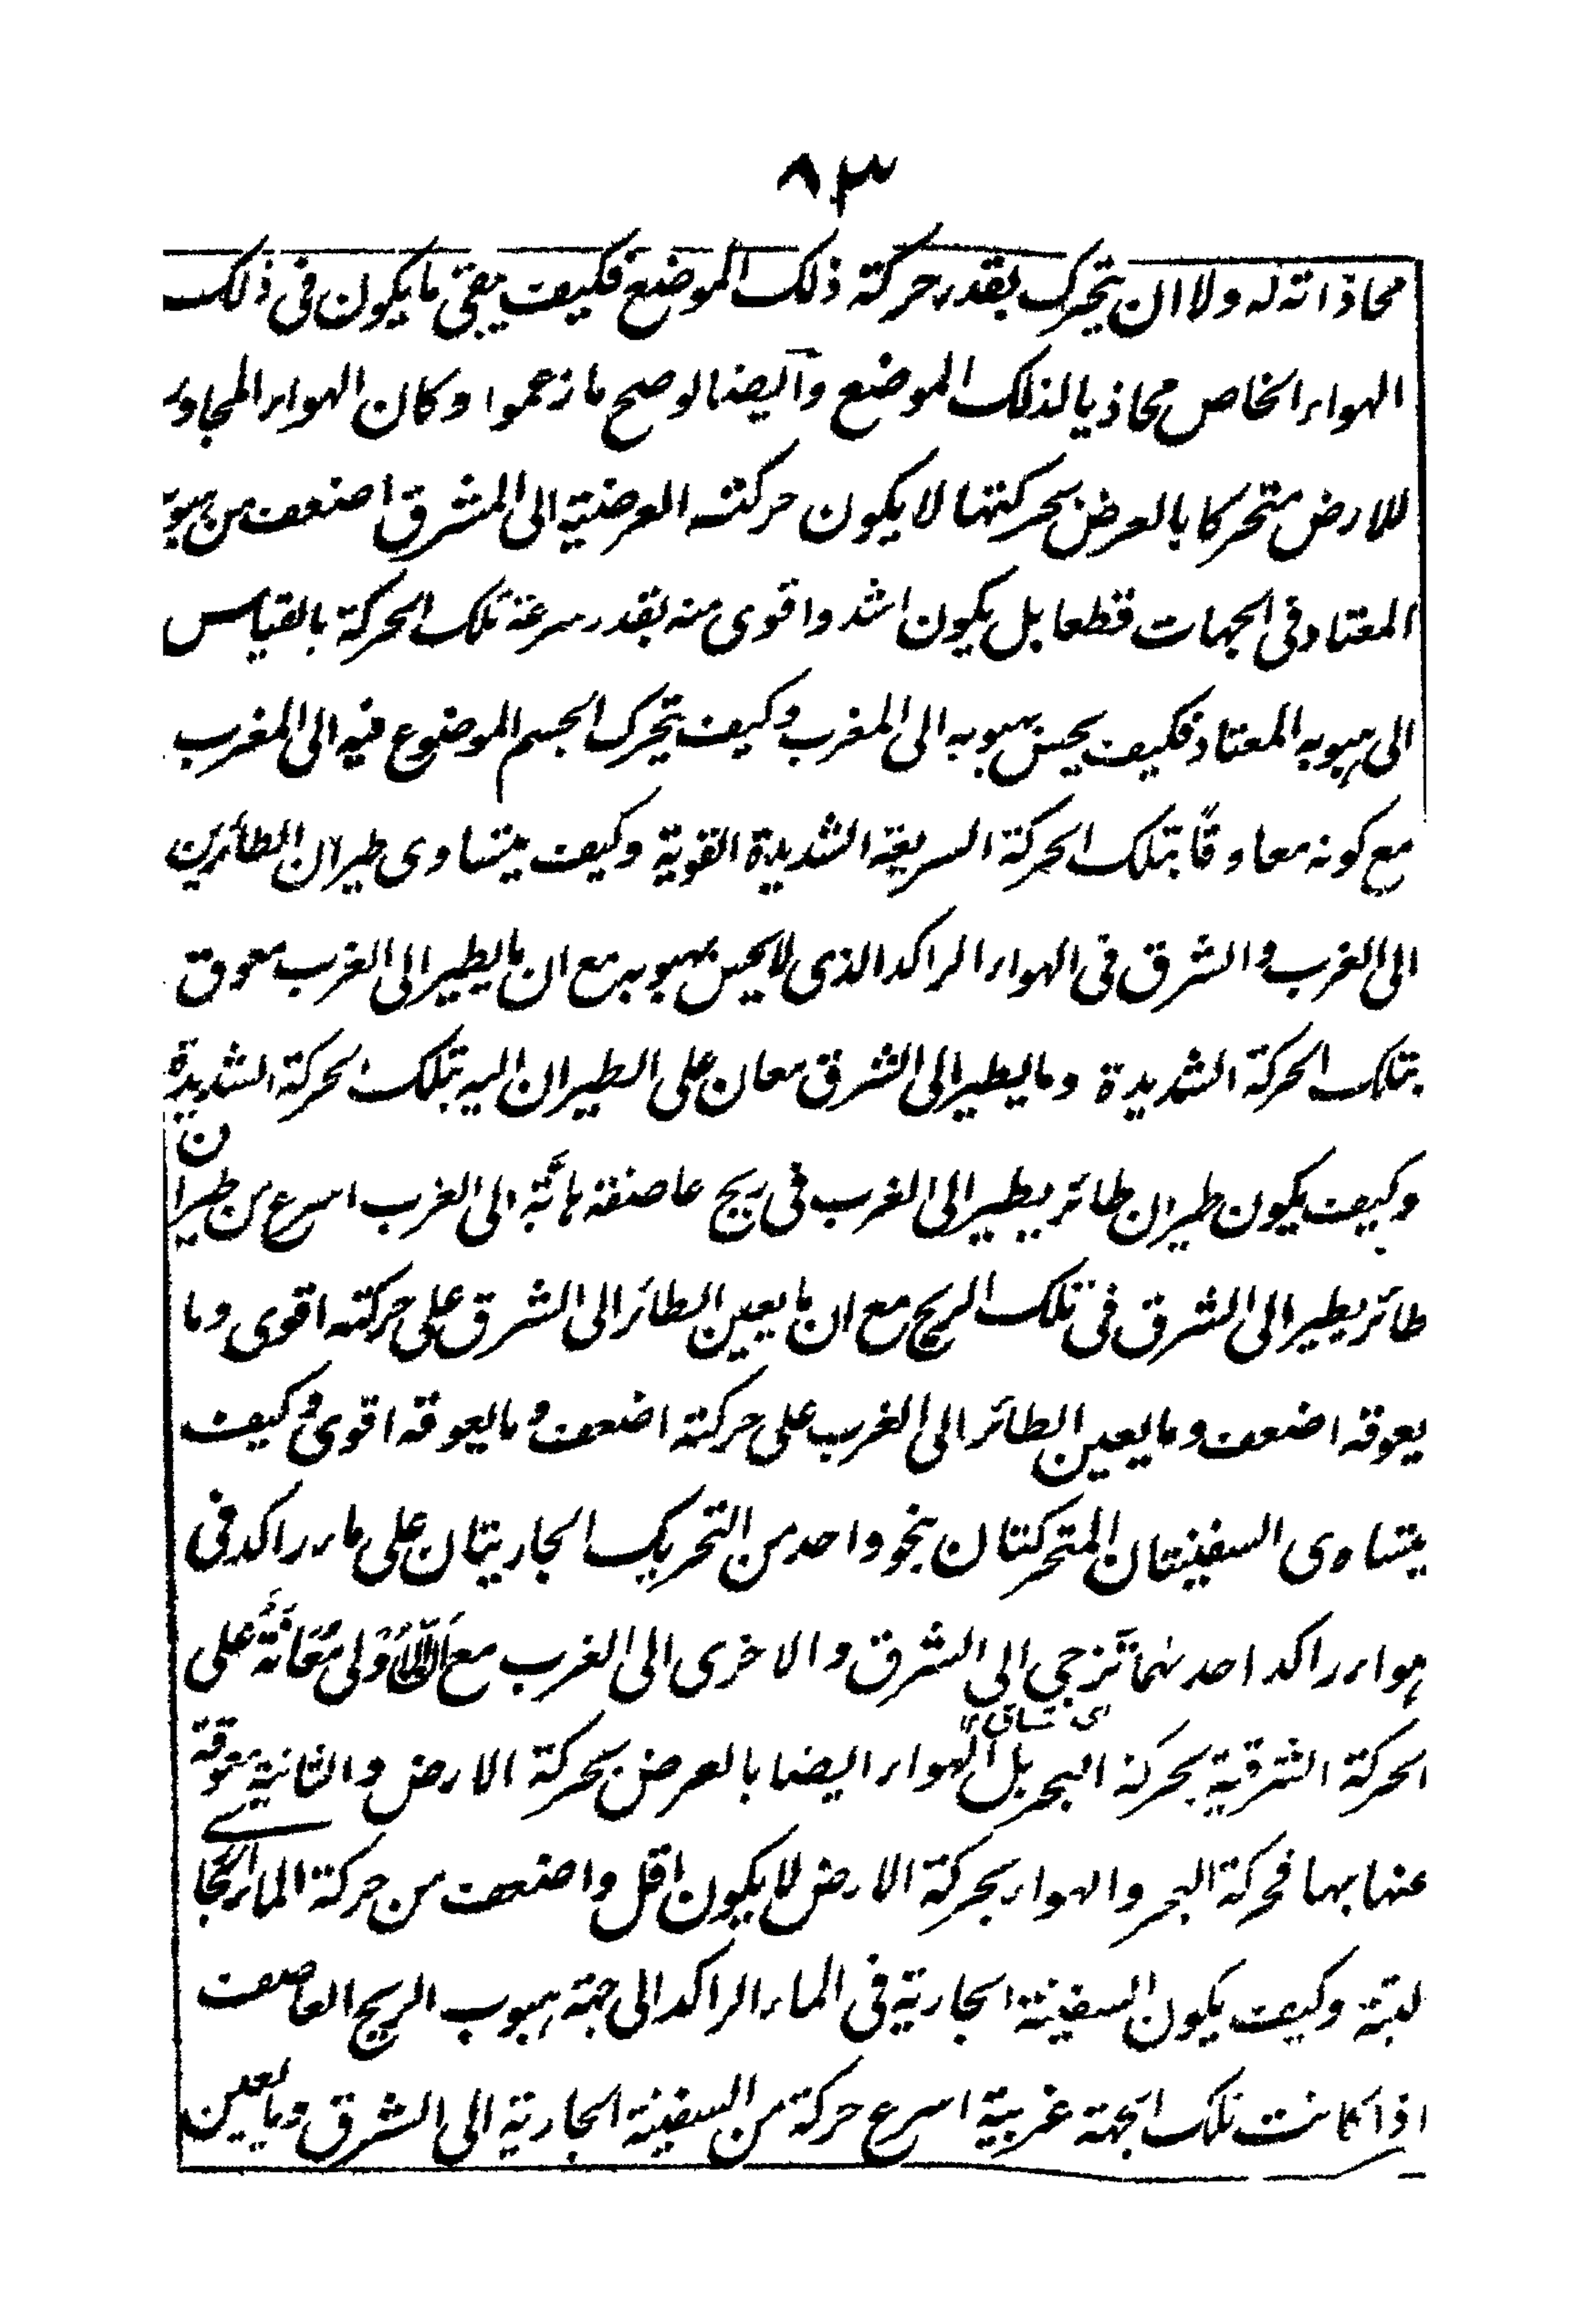 ٨٣
محاذاته له ولا ان يتحرك بقدر حركة ذلك الموضع فكيف يبقى ما يكون فى ذلك
الهواء الخاص محاذيا لذلك الموضع وايضا لو صح ما زعموا وكان الهواء المجاور
للارض متحركا بالعرض بحركتها لا يكون حركته العرضية الى المشرق اضعف من هبوبه
المعتاد فى الجهات قطعا بل يكون اشد واقوى منه بقدر سرعة تلك الحركة بالقياس
الى هبوبه المعتاد فكيف يحس هبوبه الى المغرب وكيف يتحرك الجسم الموضوع فيه الى المغرب
مع كونه معاوقًا بتلك الحركة السريعة الشديدة القوية وكيف يتساوى طيران الطائرين
الى الغرب والشرق فى الهواء الراكد الذى لا يحس بهبوبه مع ان ما يطير الى الغرب معوق
بتلك الحركة الشديدة وما يطير الى الشرق معان على الطيران اليه بتلك الحركة الشديدة
وكيف يكون طيران طائر يطير الى الغرب فى ريح عاصفة هابّة الى الغرب اسرع من طيران
طائر يطير الى الشرق فى تلك الريح مع ان ما يعين الطائر الى الشرق على حركته اقوى وما
يعوقه اضعف وما يعين الطائر الى الغرب على حركته اضعف وما يعوقه اقوى وكيف
يتساوى السفينتان المتحركتان بنحو واحد من التحريك الجاريتان على ماء راكد فى
هواء راكد احدهما تزجى الى الشرق والاخرى الى الغرب مع ان الاولى معانة على
اى تساق
الحركة الشرقية بحركة البحر بل الهواء ايضا بالعرض بحركة الارض والثانية معوقة
عنها بها فحركة البحر والهواء بحركة الارض لا يكون اقل واضعف من حركة الماء الجارى
لبتة وكيف يكون السفينة الجارية فى الماء الراكد الى جهة هبوب الريح العاصف
اذا كانت تلك الجهة غربية اسرع حركة من السفينة الجارية الى الشرق وما يعين